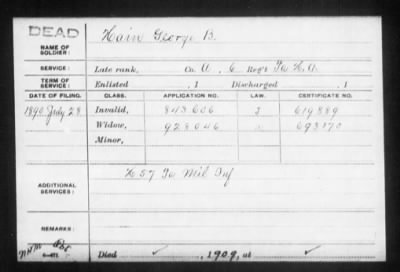 DEAD
NAME OF SOLDIER: Hain George B.
SERVICE: Late rank, Co. A, 6 Reg't Pa H.A.
TERM OF SERVICE: Enlisted , 1 Discharged , 1
DATE OF FILING. CLASS. APPLICATION NO. LAW. CERTIFICATE NO.
1890 July 28 Invalid, 843606 J 619889
Widow, 928046 693170
Minor,
ADDITIONAL SERVICES: K 57 Pa Mil Inf
REMARKS:
Died , 1909, at